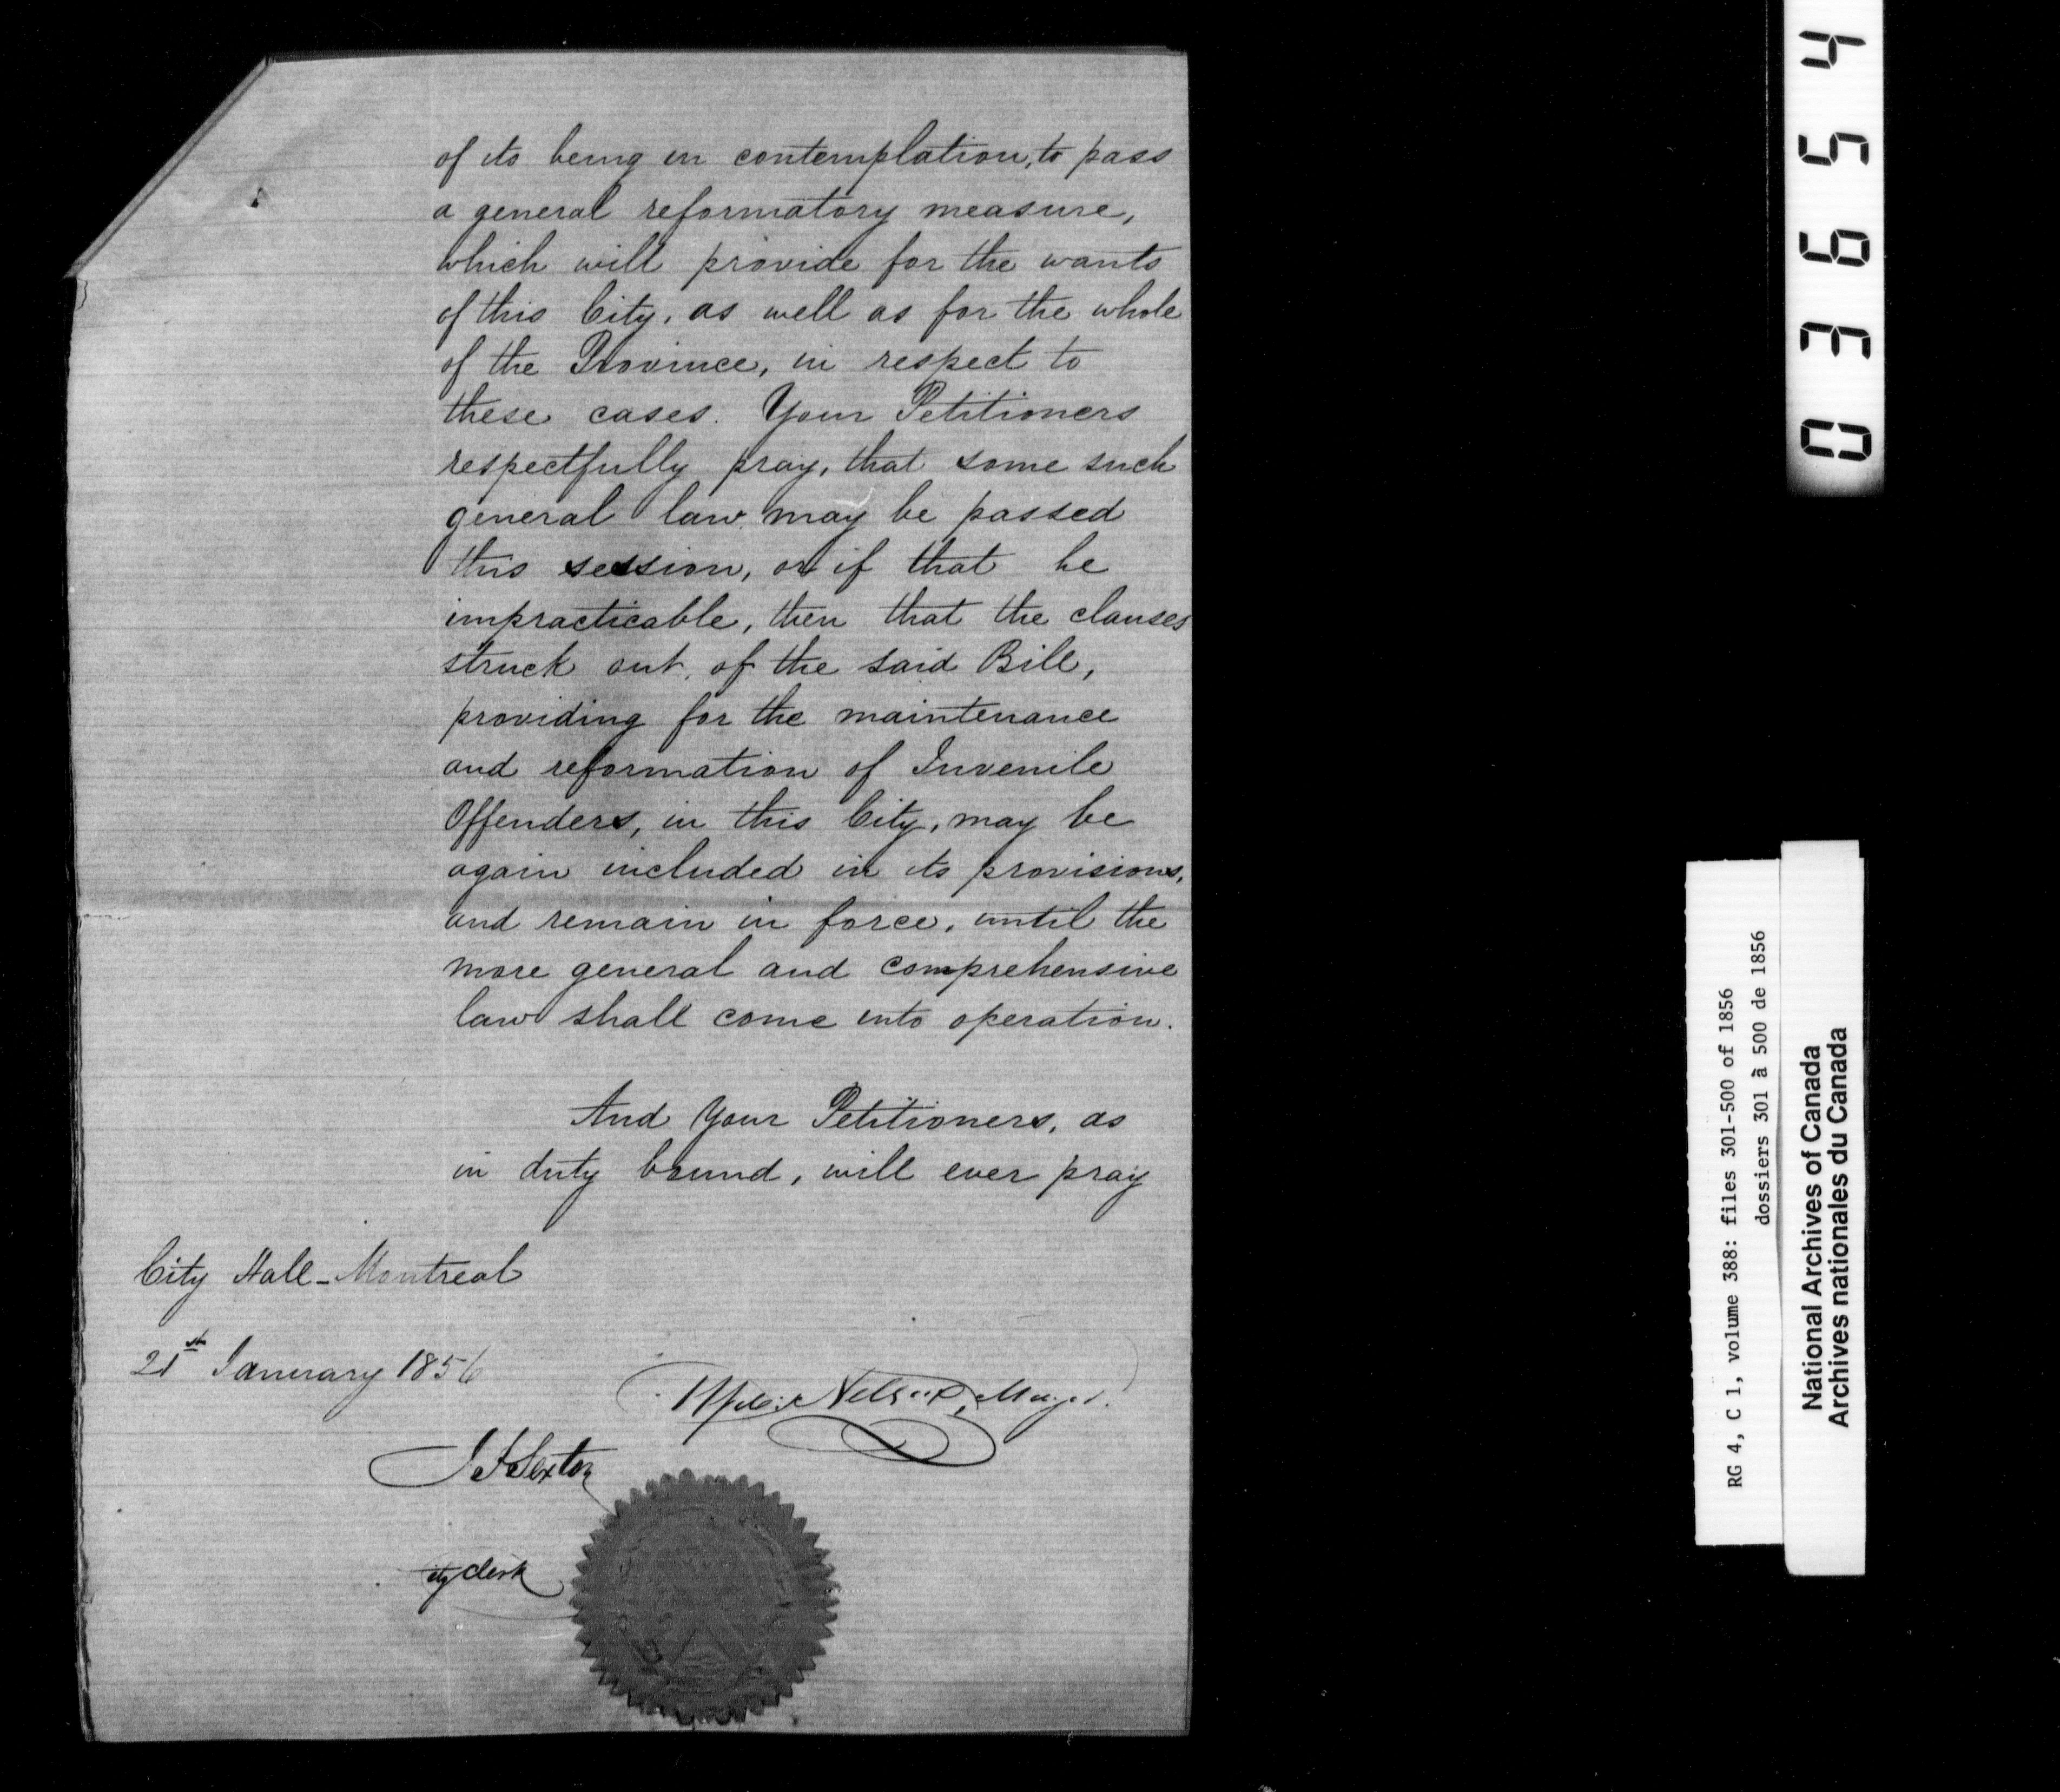 of its being in contemplation, to pass
a general reformatory measure,
which will provide for the wants
of this City, as well as for the whole
of the Province, in respect to
these cases. Your Petitioners
respectfully pray, that some such
general law may be passed
this session, or if that be
impracticable, then that the clauses
struck out, of the said Bill,
providing for the maintenance
and reformation of Juvenile
Offenders, in this City, may be
again included in its provisions,
and remain in force, until the
more general and comprehensive
law shall come into operation.
And Your Petitioners, as
in duty bound, will ever pray
City Hall - Montreal
21st January 1856
Nelson, Mayor.
J F Sexton
City Clerk
03654
RG 4, C 1, volume 388: files 301-500 of 1856
dossiers 301 à 500 de 1856
National Archives of Canada
Archives nationales du Canada